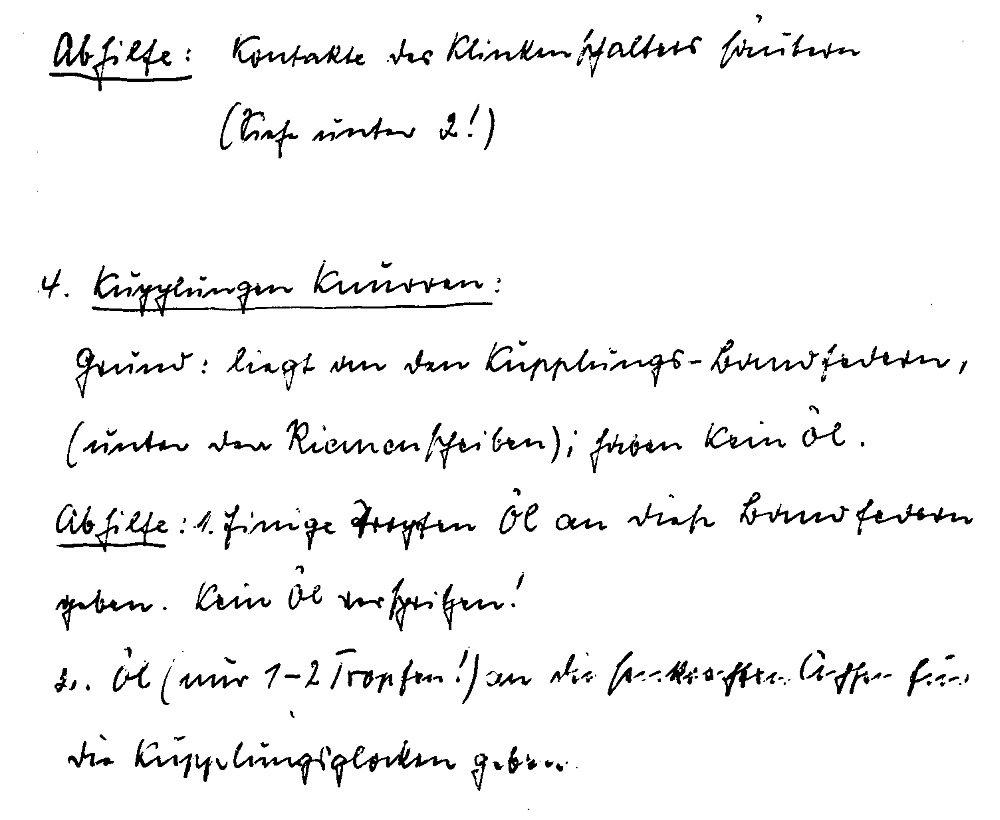 Abhilfe: Kontakte des Klinkenschalters säubern
(Siehe unter 2!)
4. Kupplungen knurren:
Grund: liegt an den Kupplungs-Bandfedern,
(unter den Riemenscheiben); haben kein Öl.
Abhilfe: 1. Einige Tropfen Öl an diese Bandfedern
geben. Kein Öl verspritzen!
2. Öl (nur 1-2 Tropfen!) an die senkrechten Achsen für
die Kupplungsglocken geben.